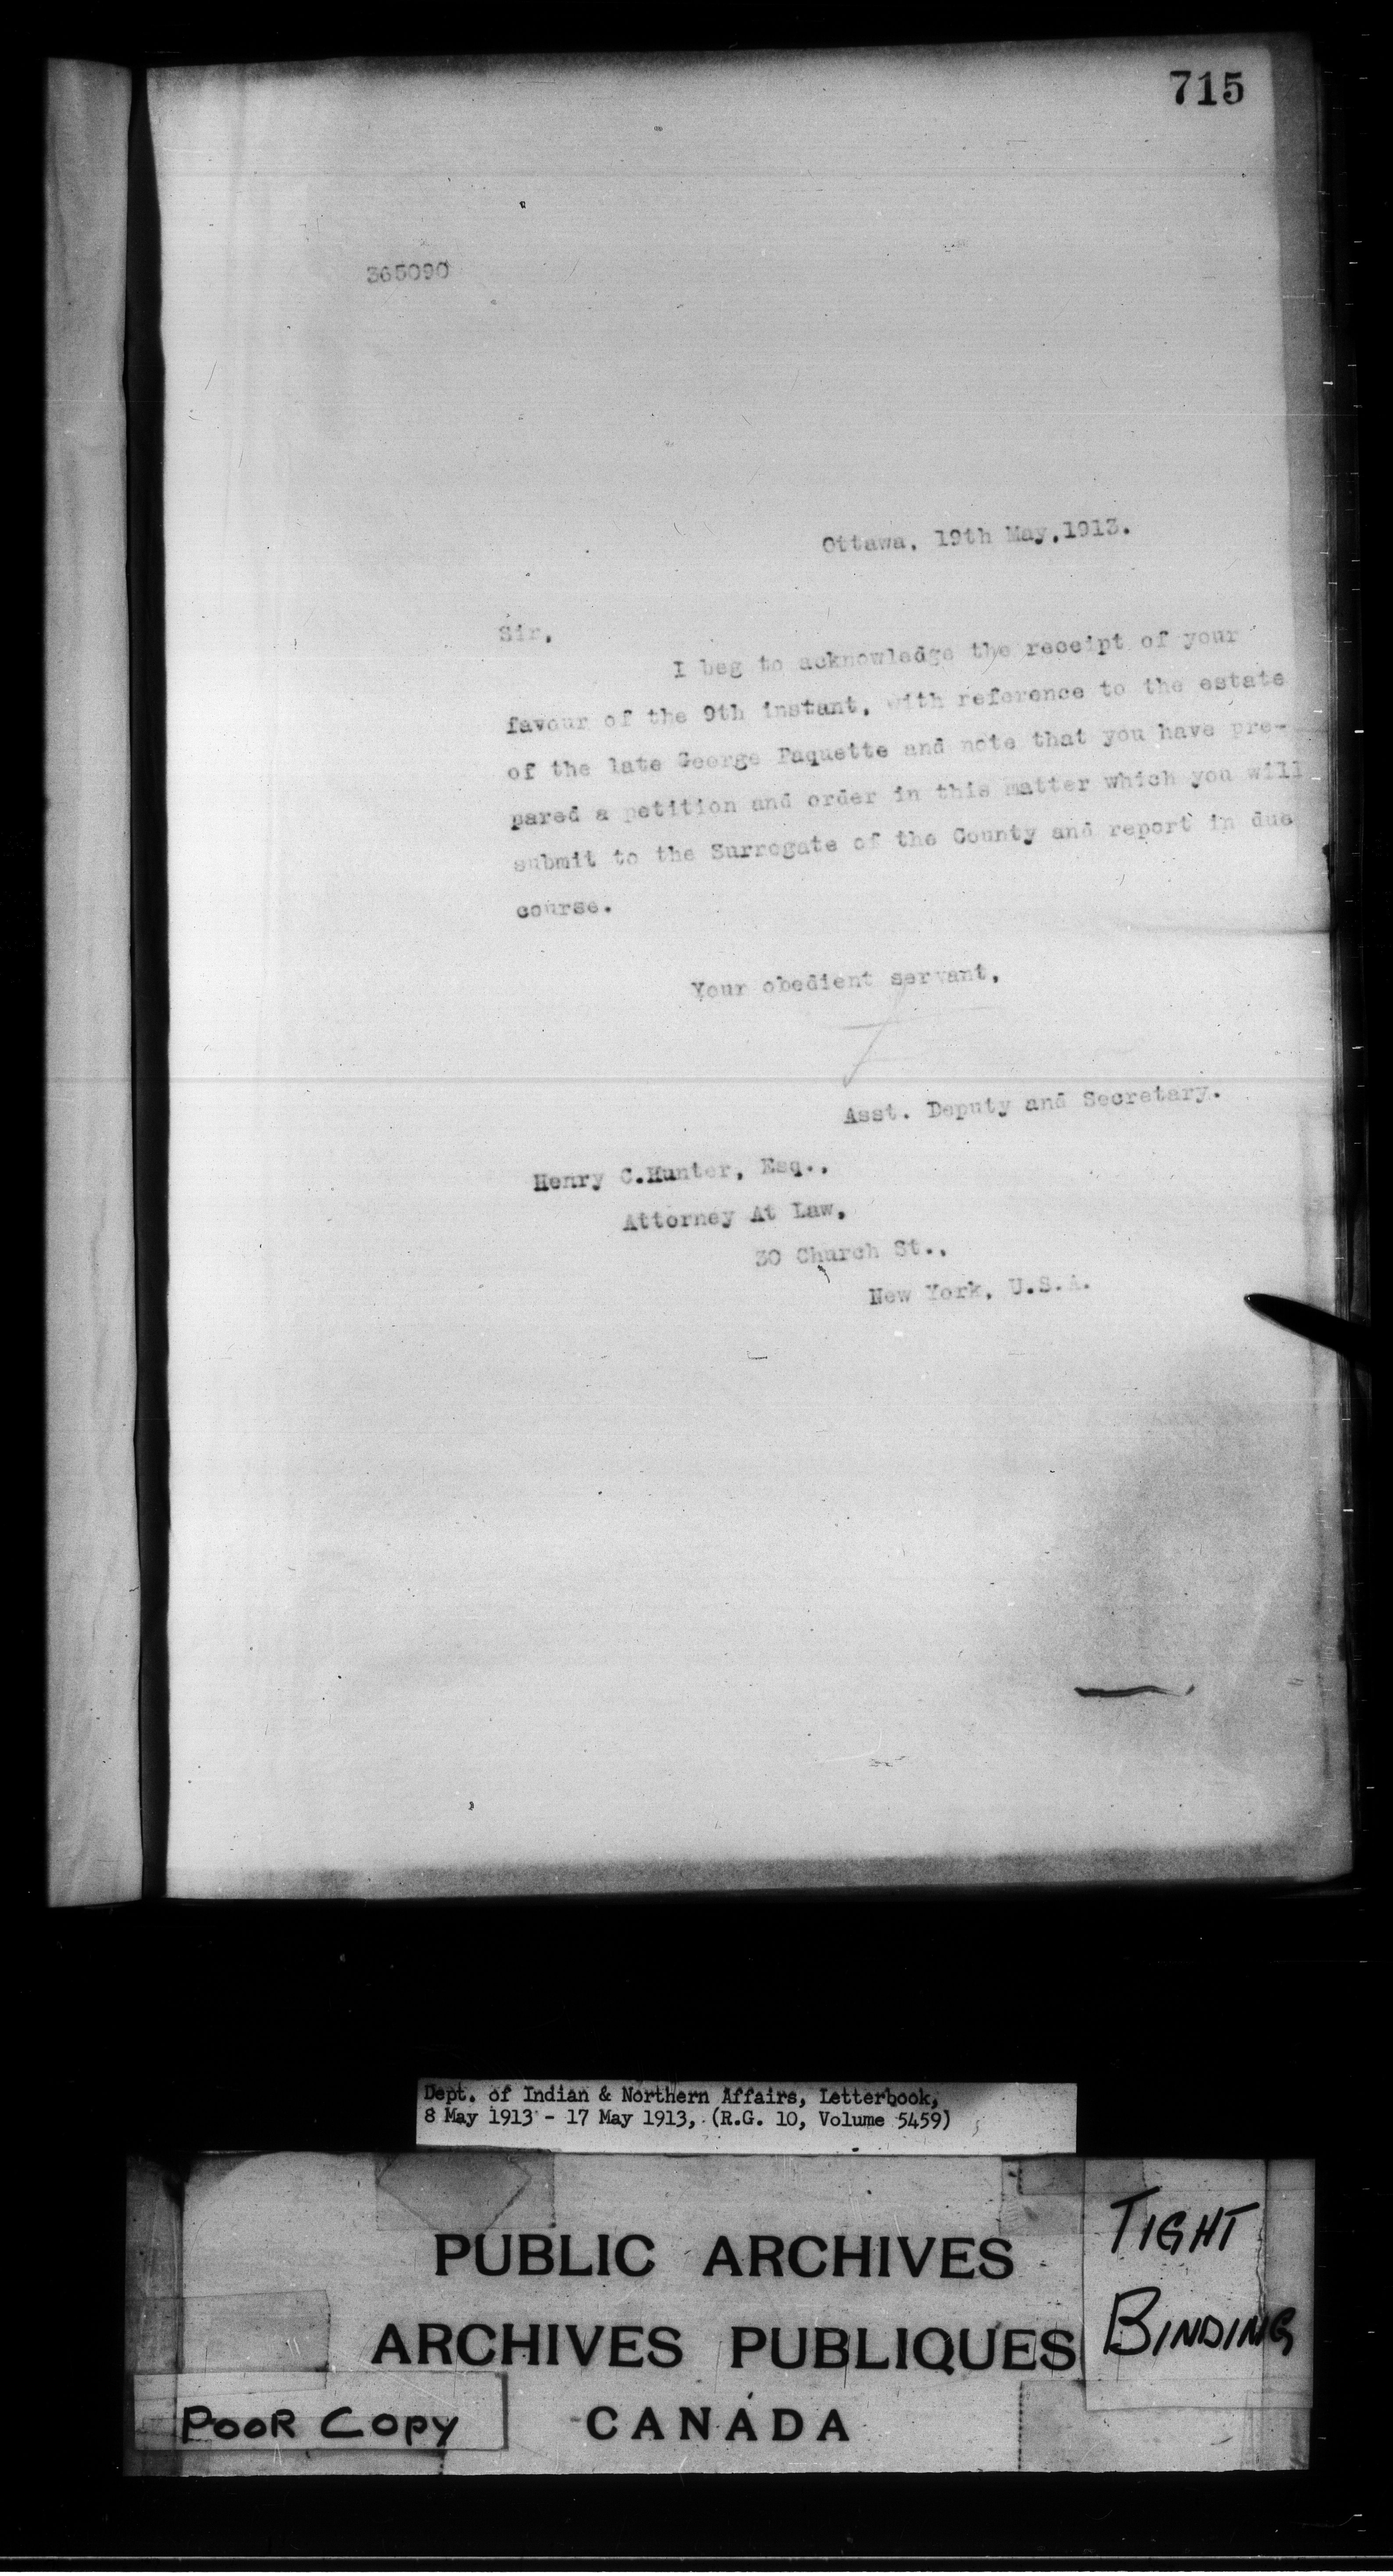 715
365090
Ottawa, 19th May,1913.
Sir,
I beg to acknowledge the receipt of your
favour of the 9th instant, with reference to the estate
of the late George Paquette and note that you have pre-
pared a petition and order in this matter which you will
submit to the Surrogate of the County and report in due
course.
Your obedient servant,
Asst. Deputy and Secretary.
Henry C.Hunter, Esq.,
Attorney At Law,
30 Church St.,
New York, U.S.A.
Dept. of Indian & Northern Affairs, Letterbook,
8 May 1913 - 17 May 1913, (R.G. 10, Volume 5459)
PUBLIC ARCHIVES
ARCHIVES PUBLIQUES
CANADA
TIGHT
BINDING
POOR COPY